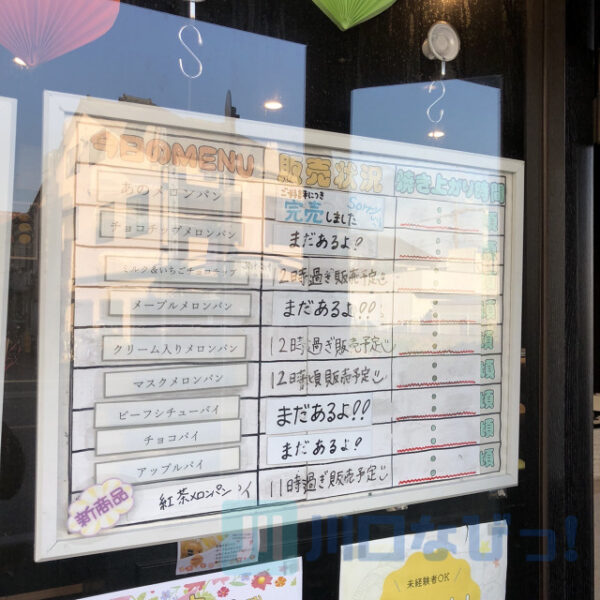 今日のMENU 販売状況 焼き上がり時間
あのメロンパン ご好評につき 完売しました Sorry 頃
チョコチップメロンパン まだあるよ! 頃
ミルク&いちごチョコチップ 12時過ぎ販売予定 頃
メープルメロンパン まだあるよ!! 頃
クリーム入りメロンパン 12時過ぎ販売予定 頃
マスクメロンパン 12時頃販売予定 頃
ビーフシチューパイ まだあるよ!! 頃
チョコパイ まだあるよ! 頃
アップルパイ 11時過ぎ販売予定 頃
新商品 紅茶メロンパン
川口なびっ!
未経験者OK